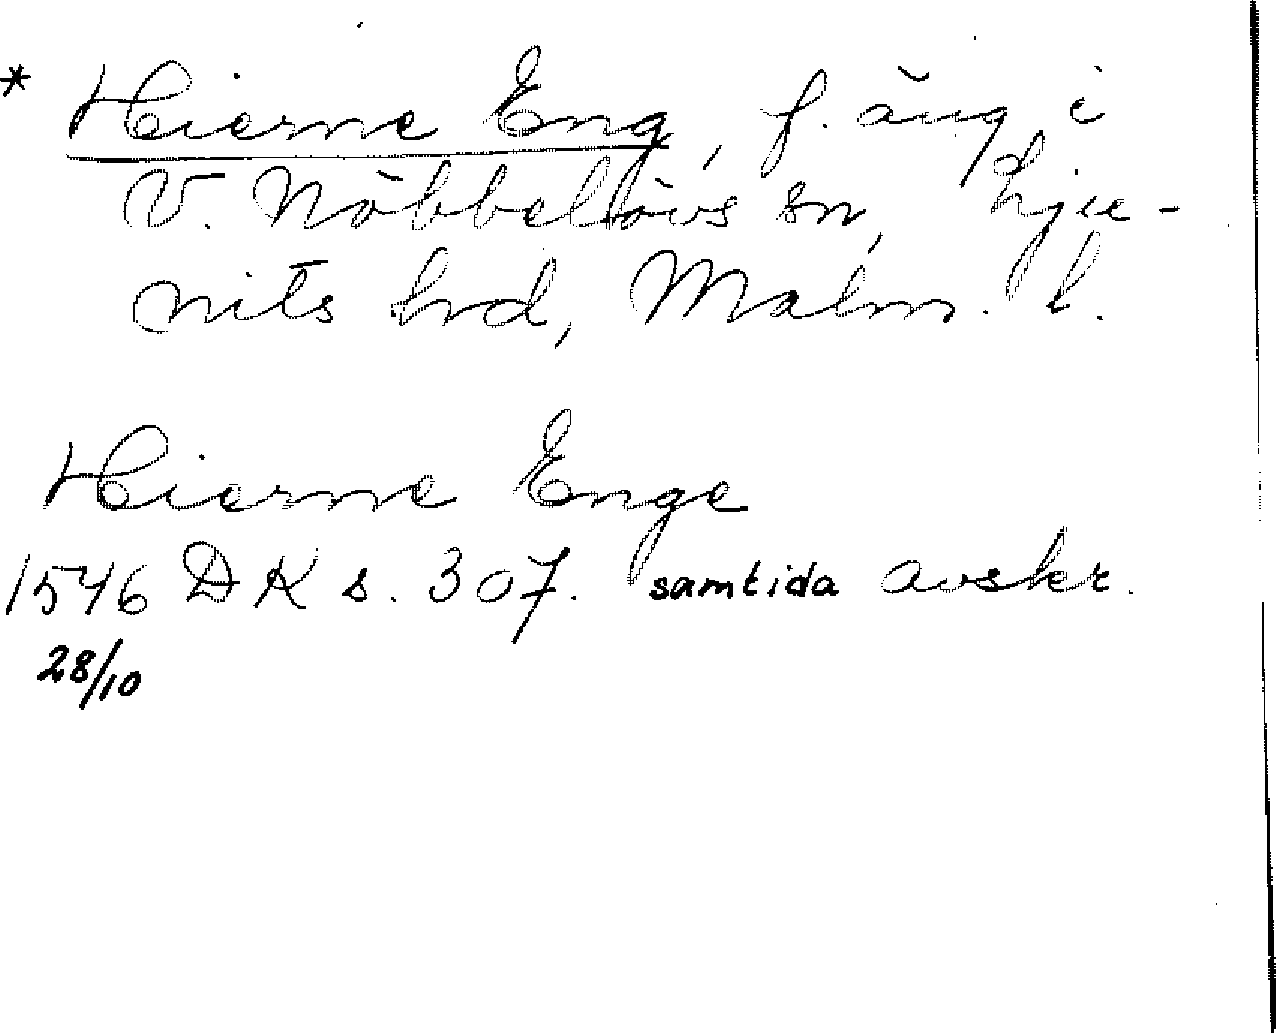 * Hierne Eng, f. äng i
V. Nöbbellövs sn, Lju-
nits hrd, Malm. l.
Hierne Enge
1546 DK s. 307. samtida avskr.
28/10